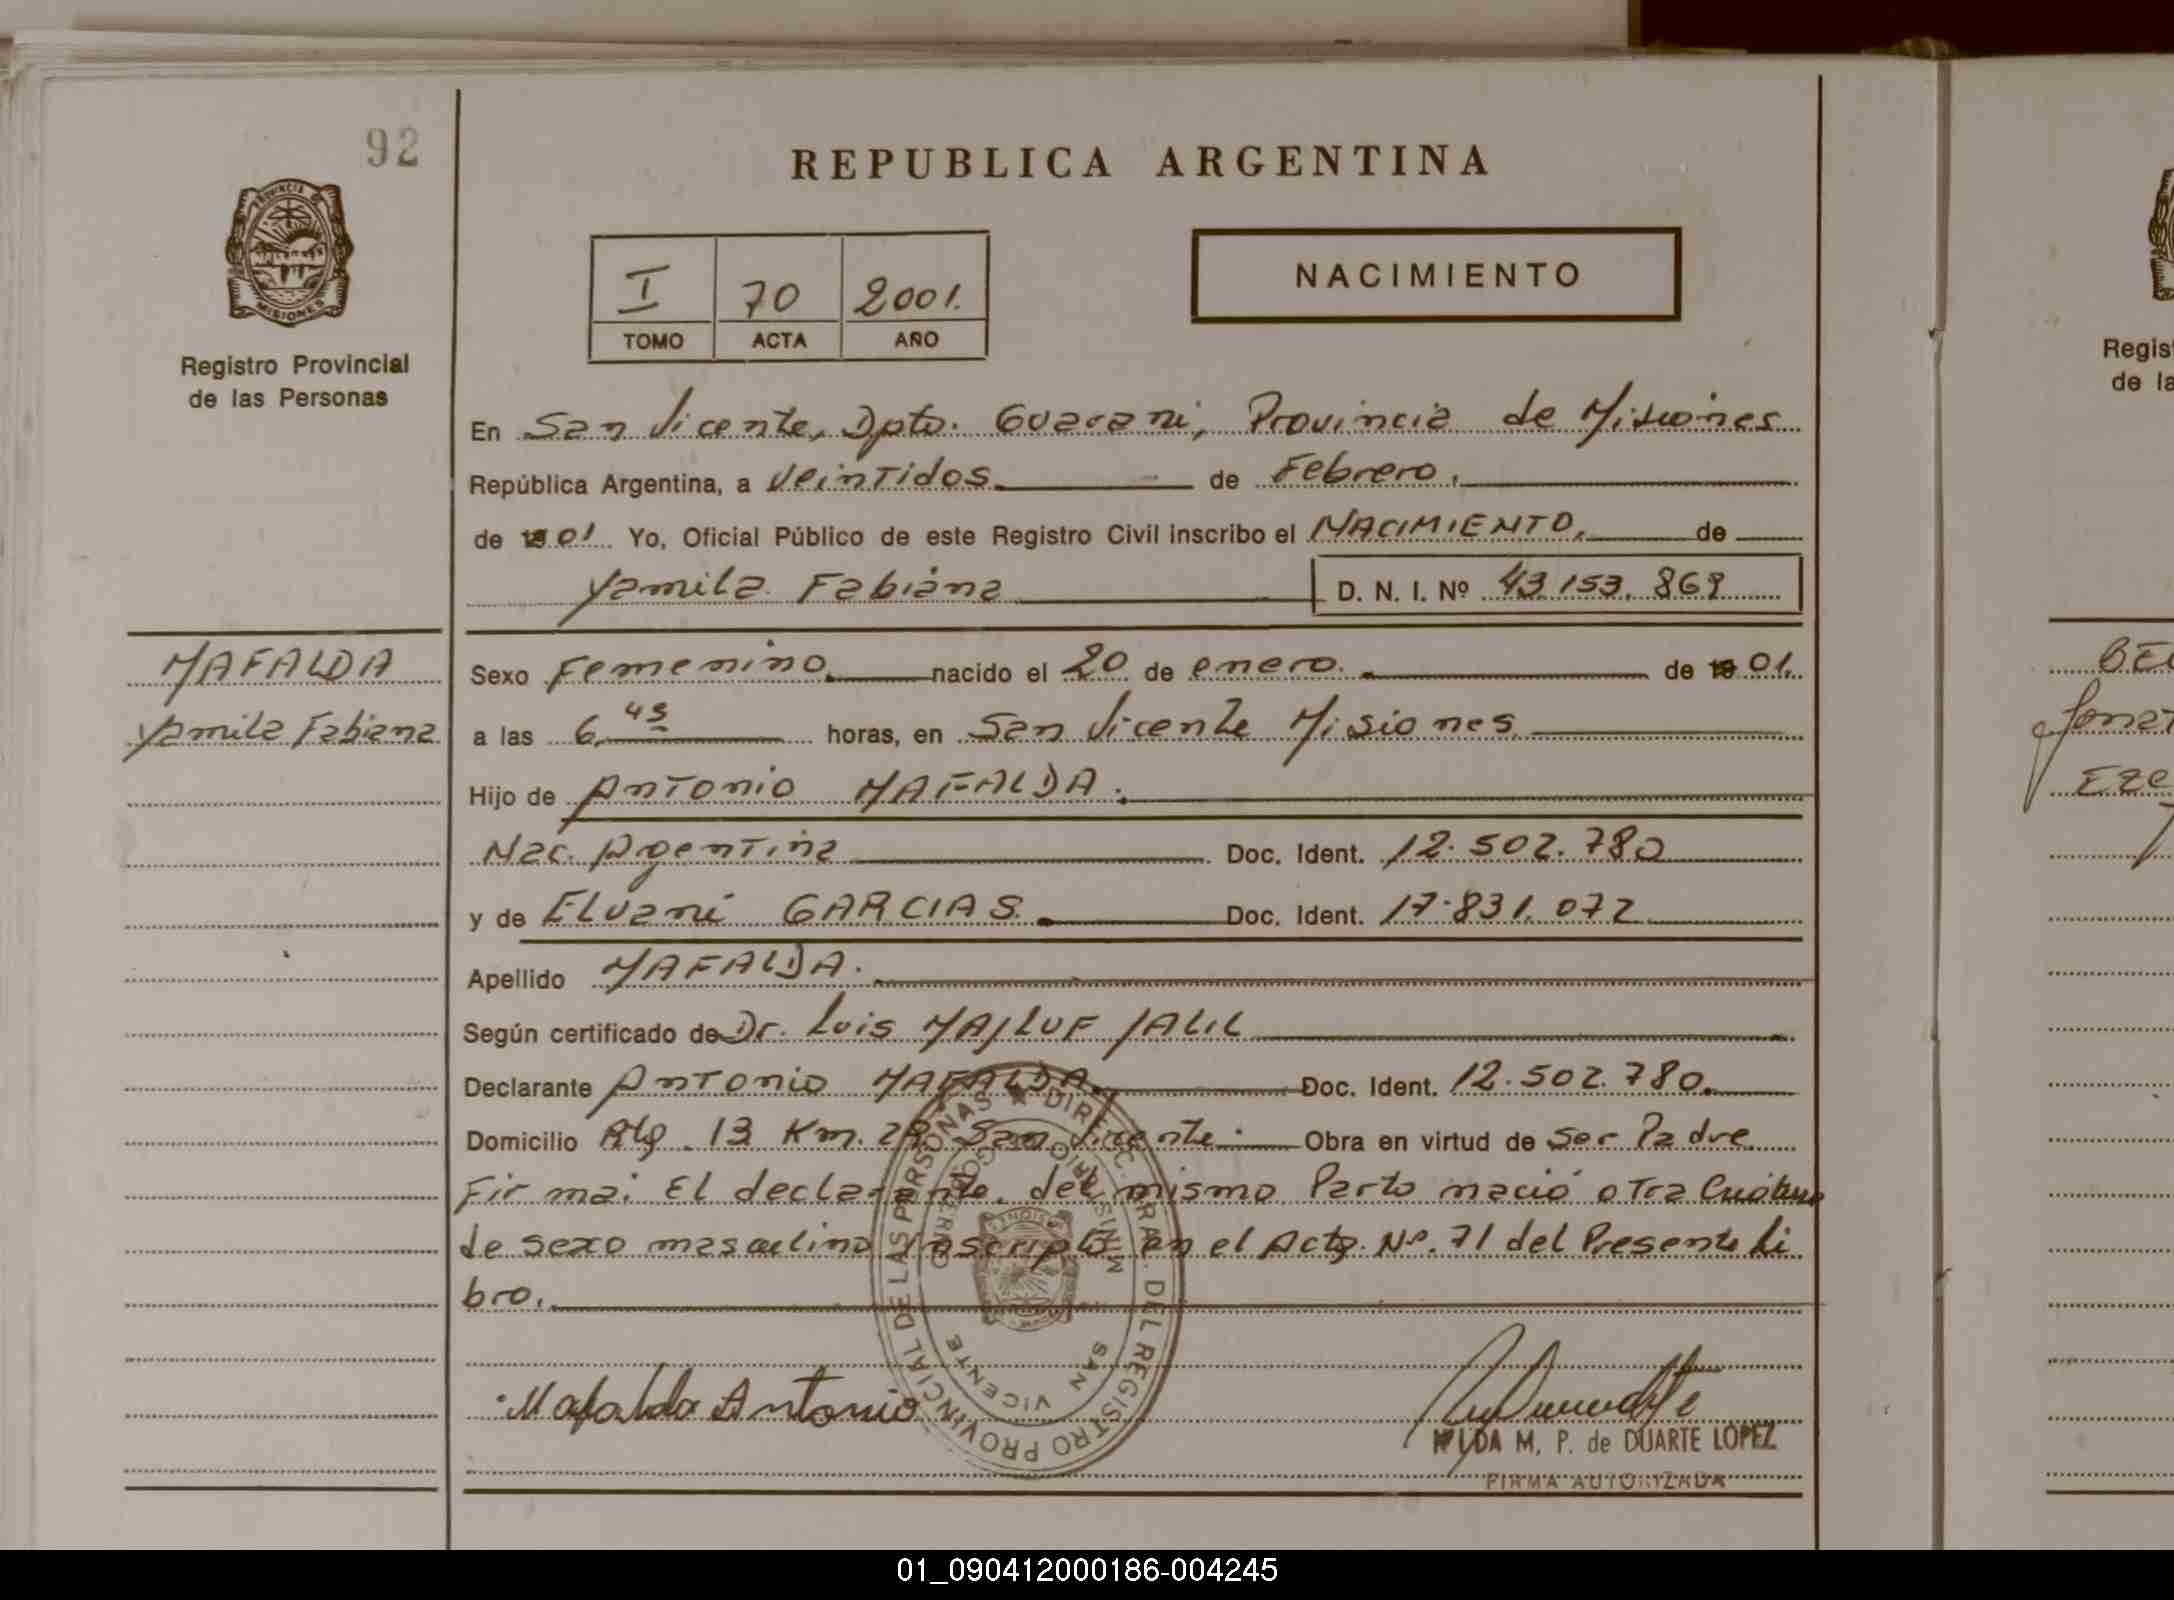 92
REPUBLICA ARGENTINA
PROVINCIA DE
MISIONES
Registro Provincial
de las Personas
I 70 2001.
TOMO ACTA AÑO
NACIMIENTO
En San Vicente, Dpto. Guarani, Provincia de Misiones
República Argentina, a Veintidos de Febrero.
de 01 Yo, Oficial Público de este Registro Civil inscribo el NACIMIENTO, de
Yamila Fabiana D. N. I. Nº 43.153.869
MAFALDA
Yamila Fabiana
Sexo Femenino nacido el 20 de enero. de 01.
a las 6,45 horas, en San Vicente Misiones
Hijo de Antonio MAFALDA.
Nac. Argentina Doc. Ident. 12.502.780
y de Elvani GARCIAS. Doc. Ident. 17.831.072
Apellido MAFALDA.
Según certificado de Dr. Luis MAJLUF JALIL
Declarante Antonio MAFALDA. Doc. Ident. 12.502.780.
Domicilio 13 Km. San Vicente. Obra en virtud de ser Padre
Firma: El declarante. del mismo Parto nació otra
de sexo masculino inscripto en el Acta Nº. 71 del Presente li
bro.
DIREC. GRAL. DEL REGISTRO PROVINCIAL DE LAS PERSONAS
MINISTERIO DE GOBIERNO
SAN VICENTE
Mafalda Antonio
HILDA M. P. de DUARTE LOPEZ
FIRMA AUTORIZADA
Regis
de la
01_090412000186-004245